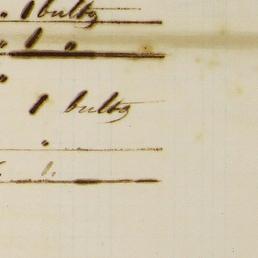 „ 1 bulto
„ 1 „
„
1 bulto
„
1.